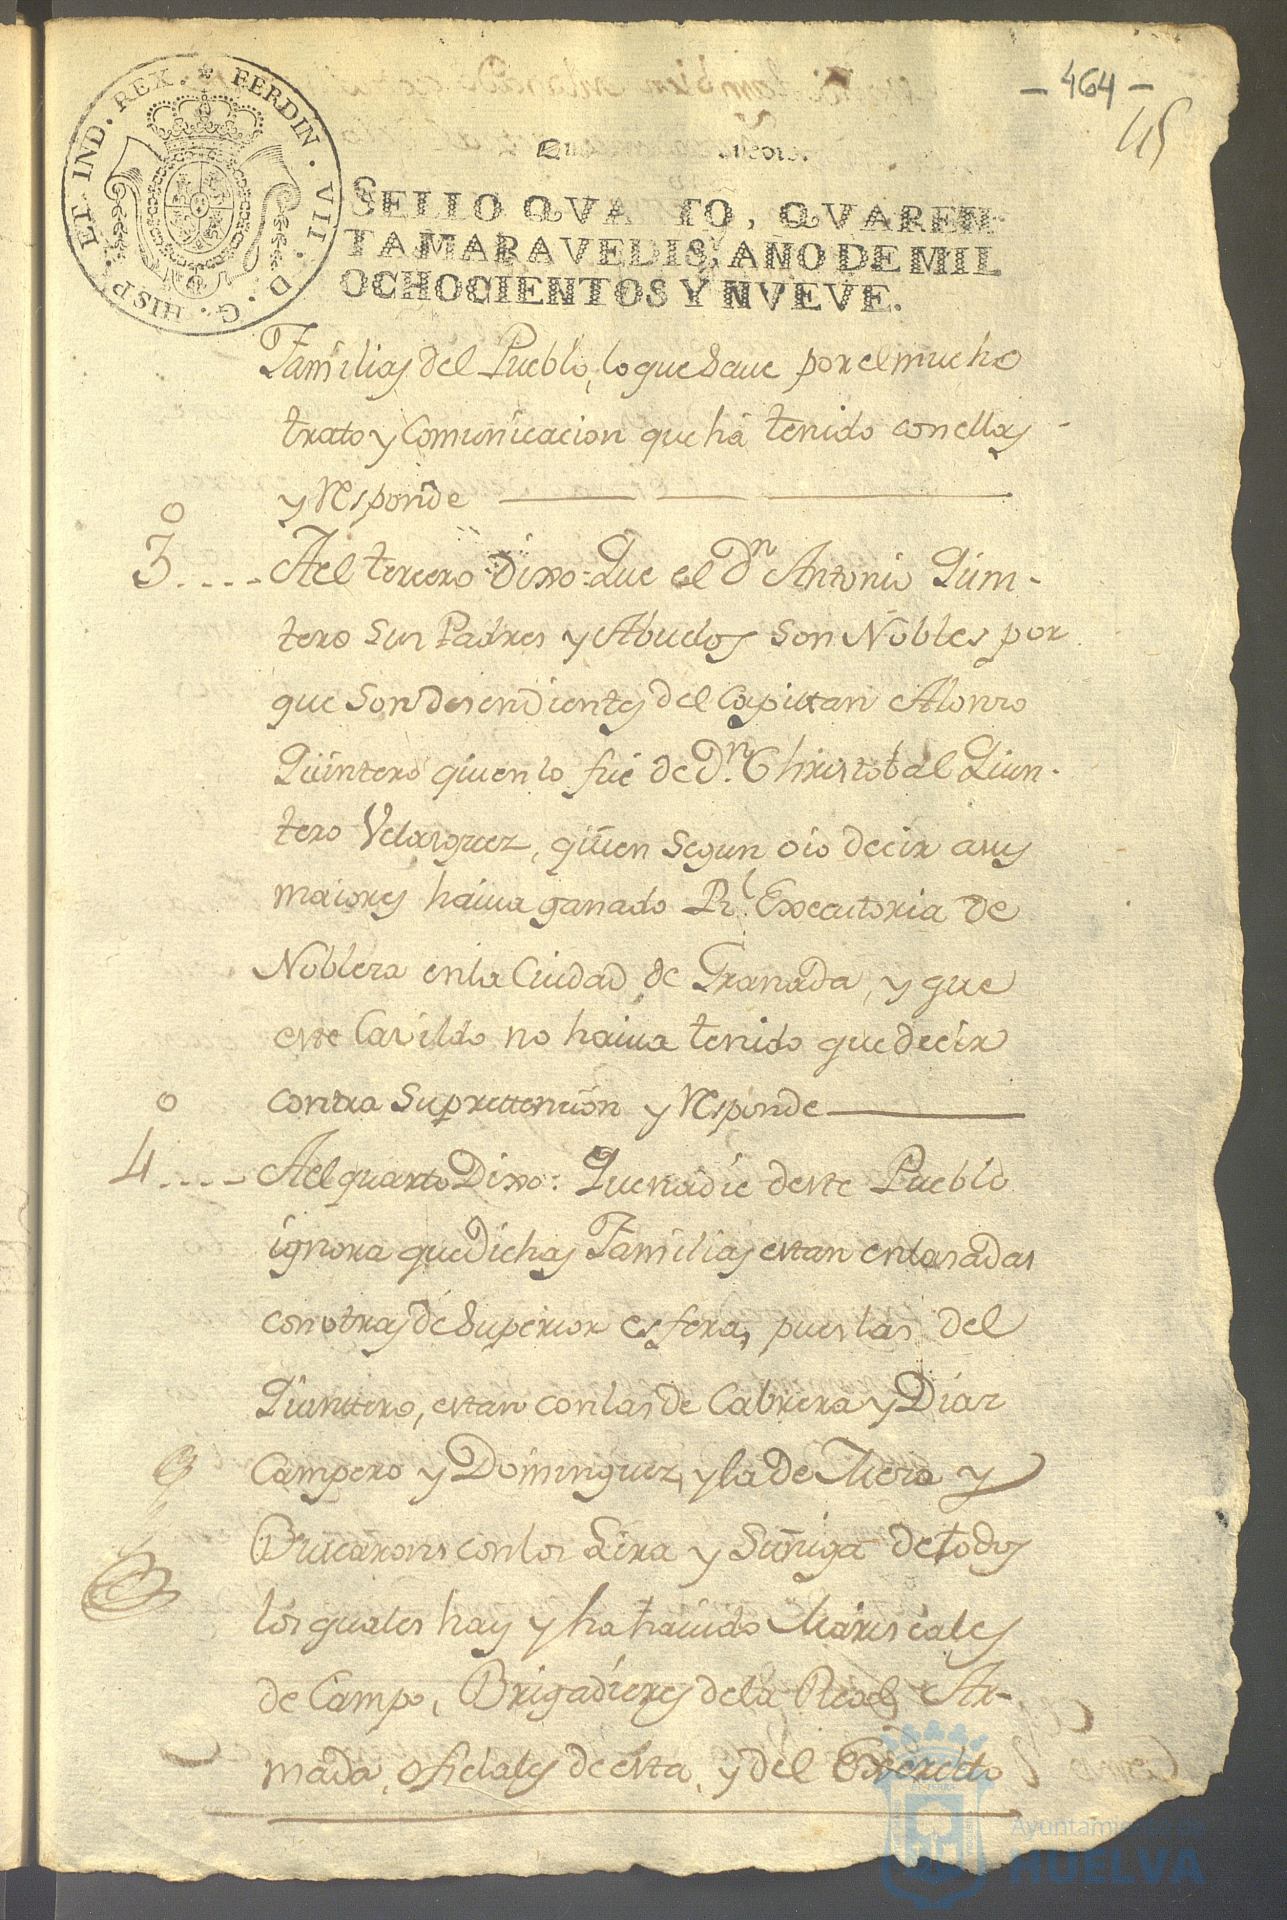 - 464 -
45
HISP. ET IND. REX. FERDIN. VII. D. G.
SELLO QVARTO, QVAREN-
TA MARAVEDIS, AÑO DE MIL
OCHOCIENTOS Y NVEVE.
Familias del Pueblo, lo que save por el mucho
trato y Comunicacion que há tenido con ellas
y Responde
3º.... Ael tercero Dixo: Que el Dn Antonio Quin-
tero Sus Padres y Abuelos Son Nobles por
que Son desendientes del Capittan Alonzo
Quintero quien lo fue de Dn. Christobal Quin-
tero Velasquez, quien Segun oio decir a sus
maiores haiva ganado Rl. Executoria de
Nobleza en la Ciudad de Granada, y que
este Cavildo no haiva tenido que decir
contra Su prettencion y Responde
4º.... Ael quarto Dixo: Que nadie deste Pueblo
ignora que Dichas Familias estan enlasadas
con otras de Superior esfera, pues las del
Quinttero, estan con las de Cabrera y Diaz
Campero y Dominguez, y la de Mora y
con los Lira y Suñiga de todos
los quales hay y ha havido Mariscales
de Campo, Brigadieres de la Real Ar-
mada, oficiales de esta, y del Exercito
Ayuntamiento de
HUELVA